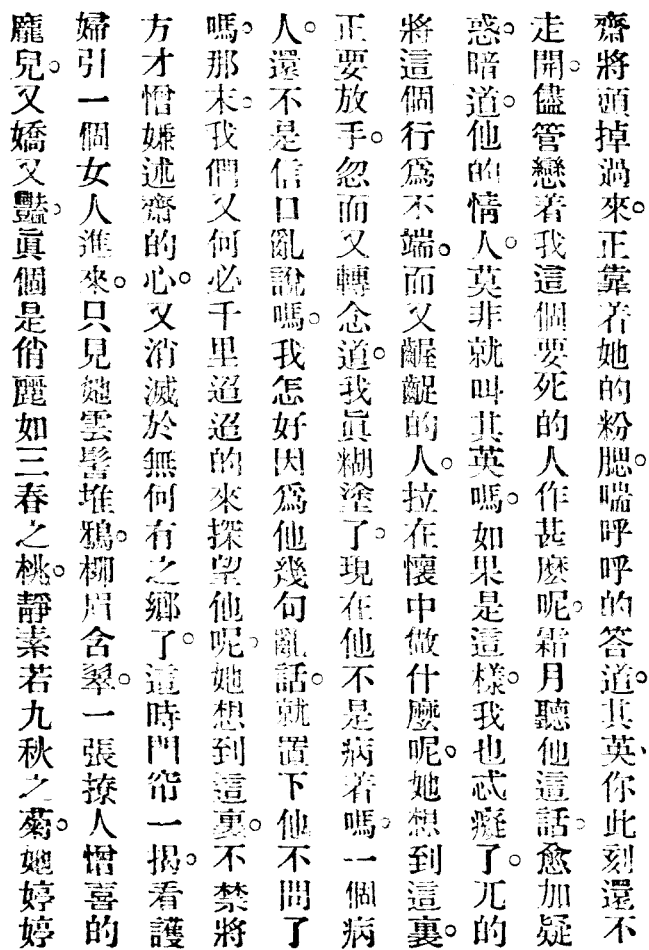 齋將頭掉過來。正靠着她的粉腮。喘呼呼的答道。其英、你此刻還不
走開。儘管戀着我這個要死的人作甚麽呢。霜月聽他這話。愈加疑
惑。暗道。他的情人。莫非就叫其英嗎。如果是這樣。我也忒癡了。兀的
將這個行爲不端。而又齷齪的人。拉在懷中做什麽呢。她想到這裏。
正要放手。忽而又轉念道。我眞糊塗了。現在他不是病着嗎。一個病
人。還不是信口亂說嗎。我怎好因爲他幾句亂話。就置下他不問了
嗎。那末。我們又何必千里迢迢的來探望他呢。她想到這裏。不禁將
方才憎嫌述齋的心。又消滅於無何有之鄉了。這時門帘一揭。看護
婦引一個女人進來。只見她雲髻堆鴉。柳眉含翠。一張撩人憎喜的
龐兒。又嬌又豔。眞個是俏麗如三春之桃。靜素若九秋之菊。她婷婷